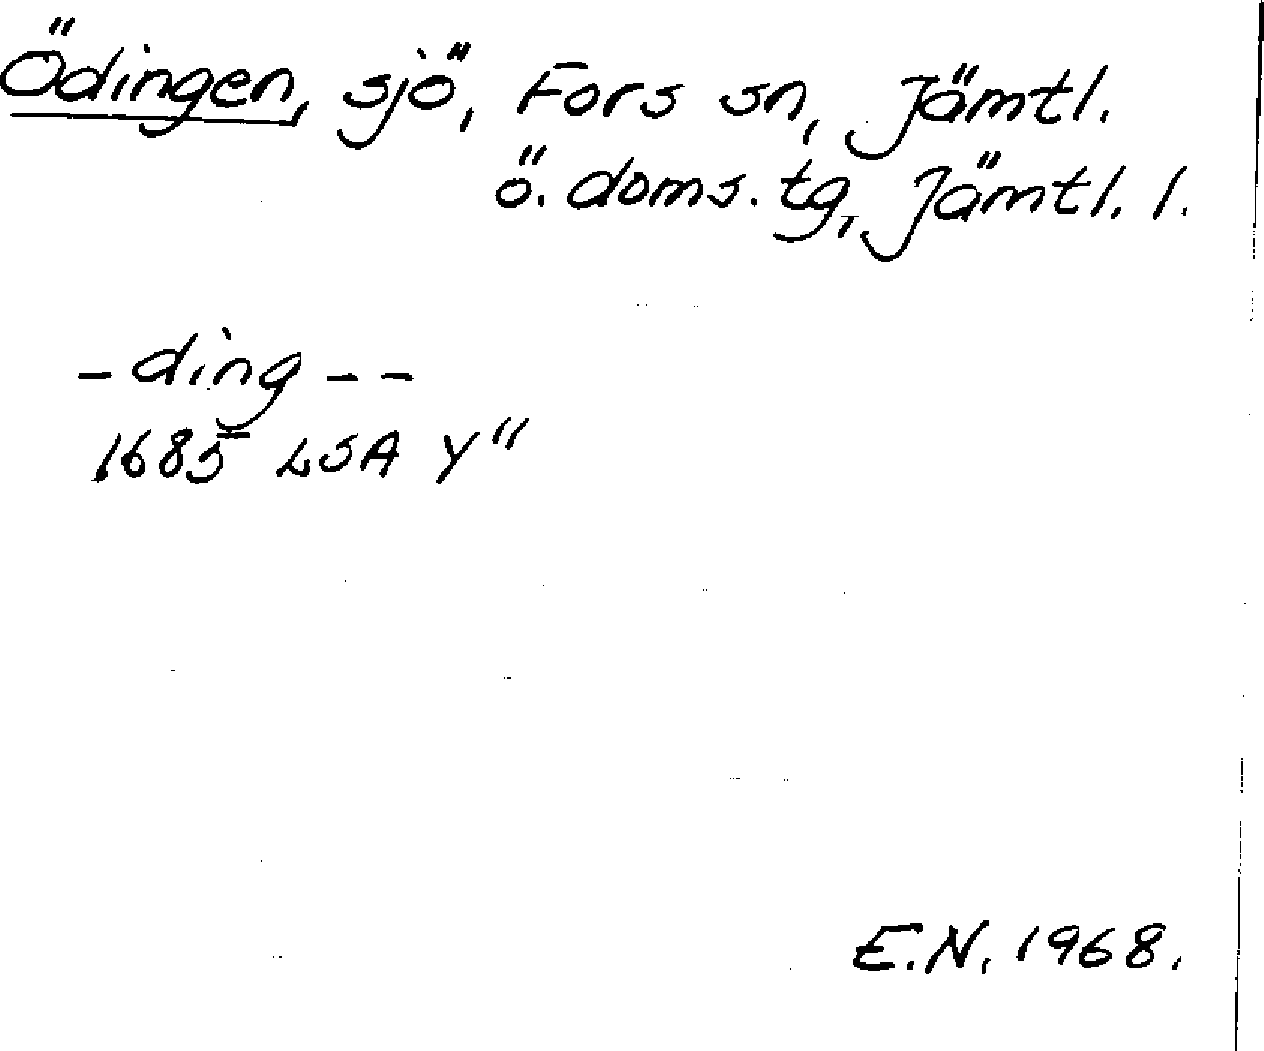 Ödingen, sjö, Fors sn, Jämtl.
ö. doms. tg, Jämtl. l.
- ding - -
1685 LSA Y"
E.N. 1968.